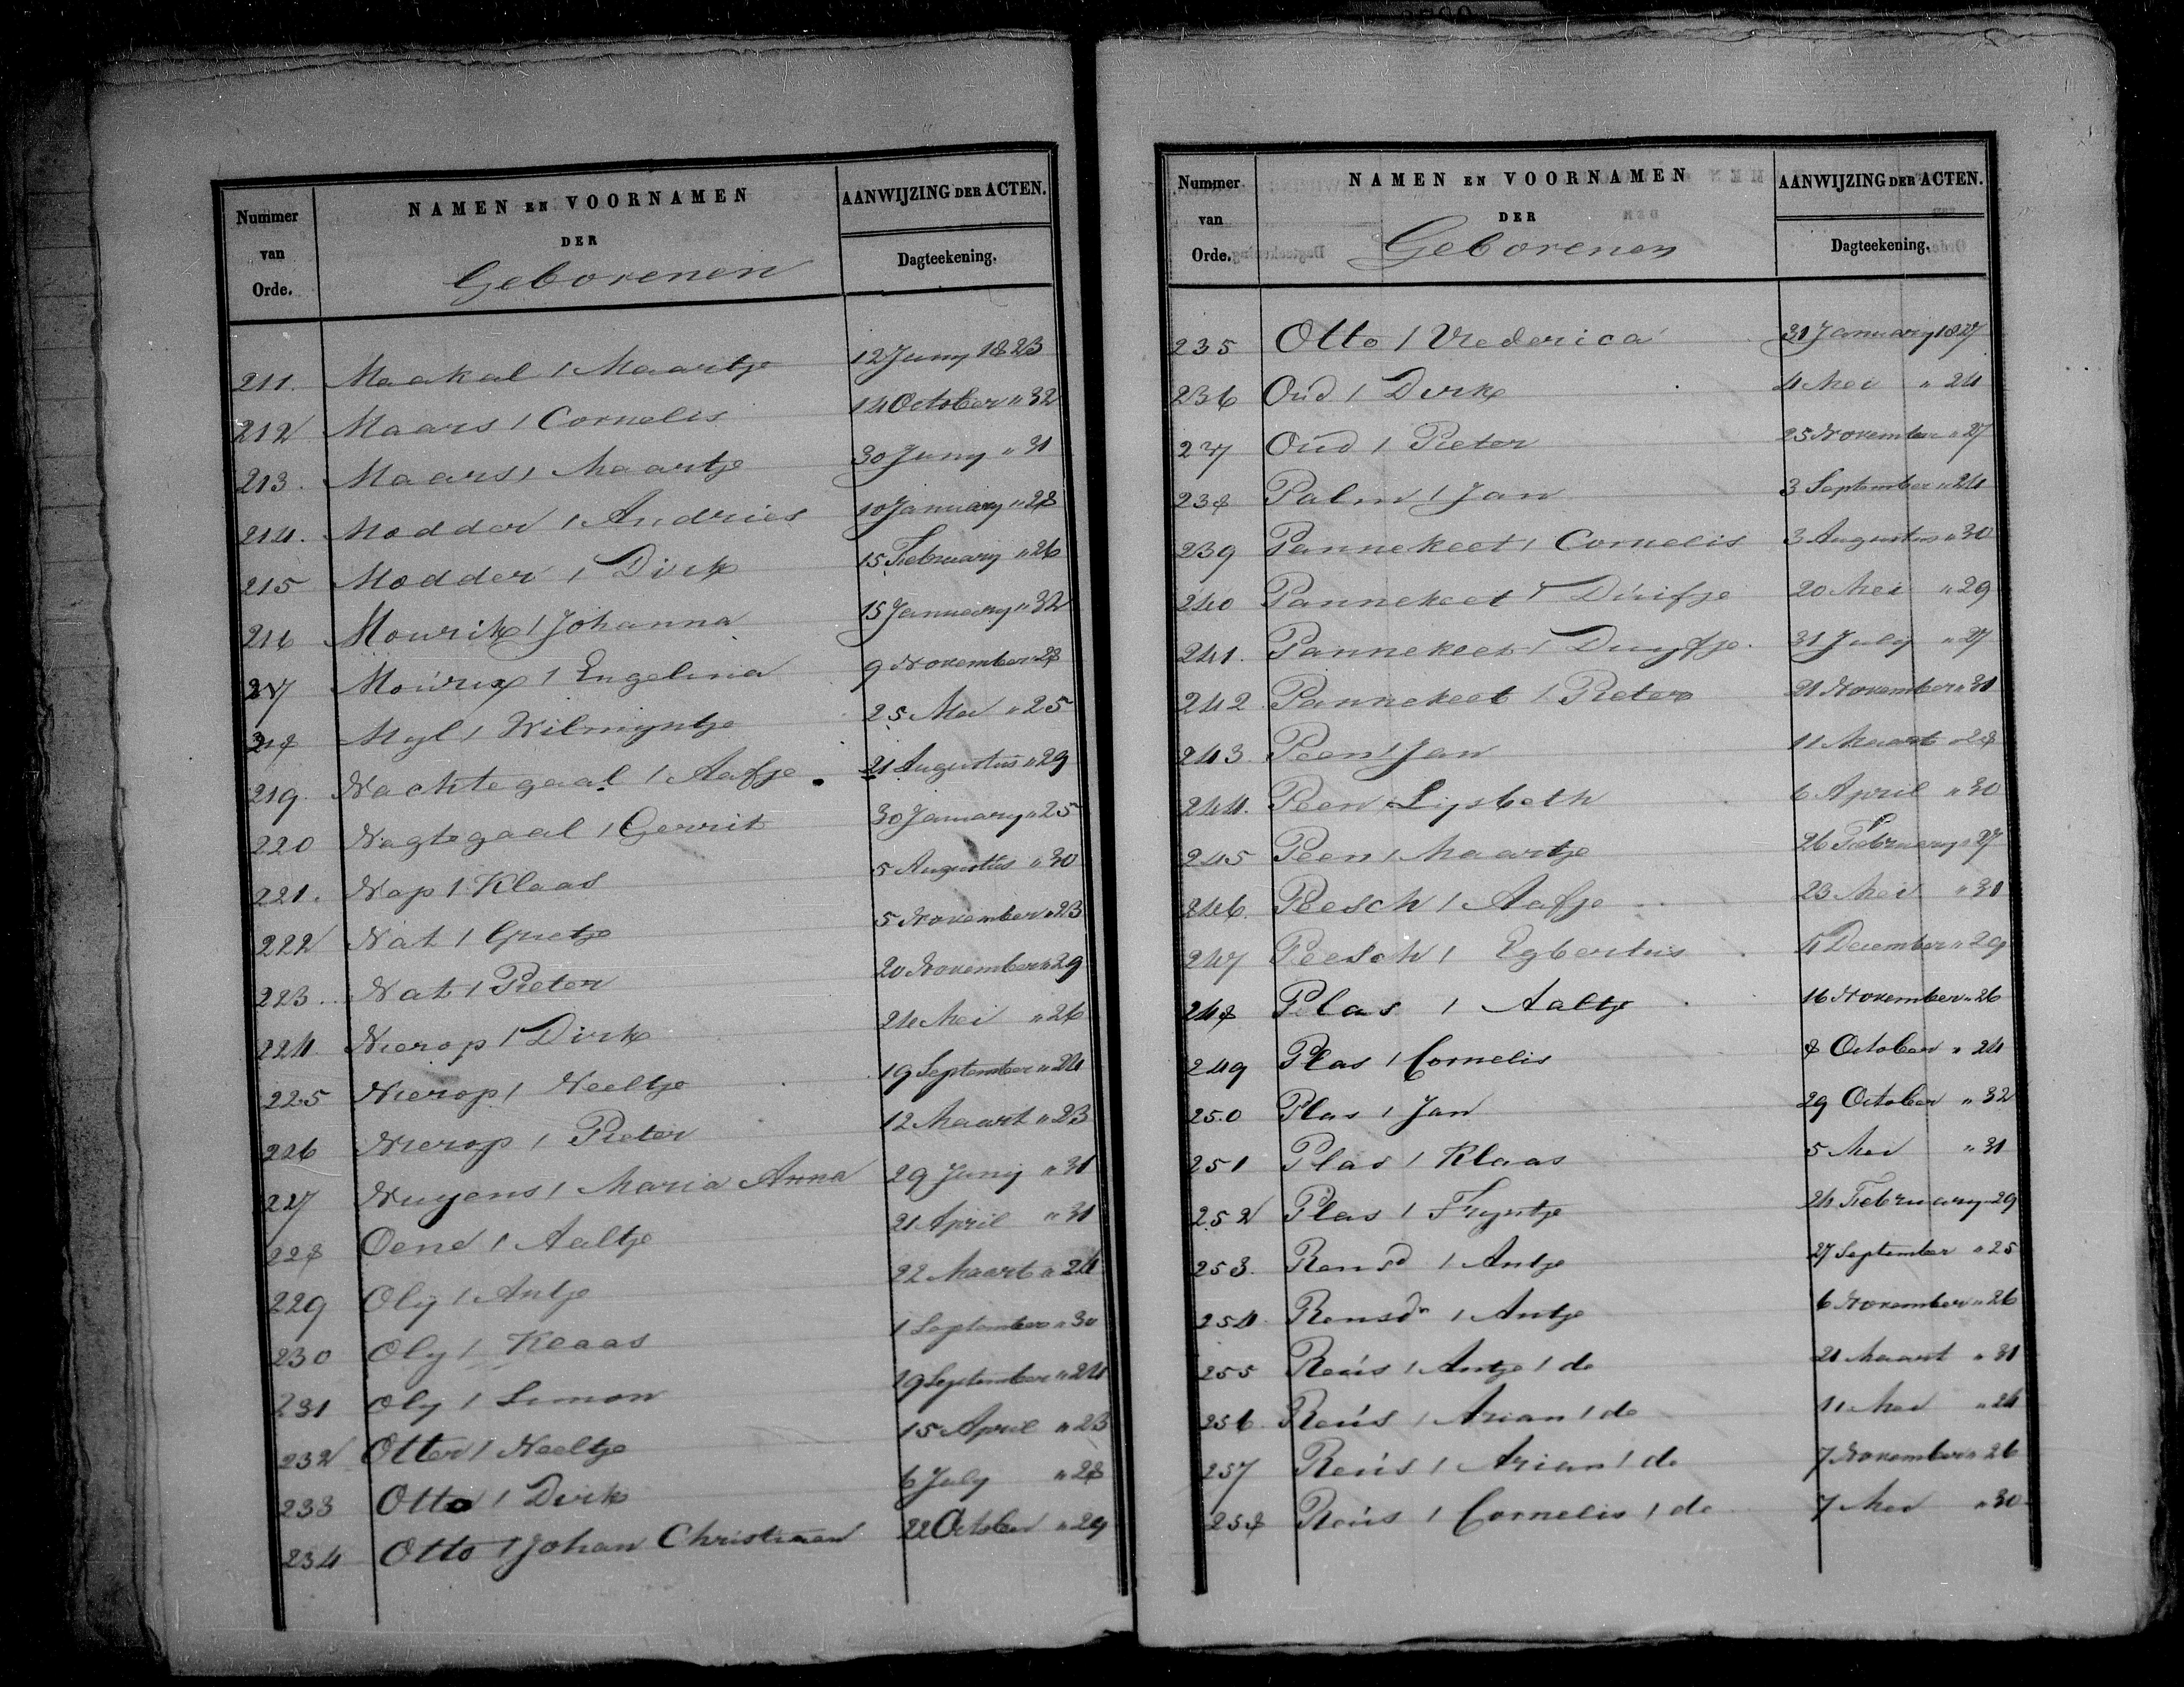 Nummer van Orde.
NAMEN EN VOORNAMEN
DER
Geborenen
AANWIJZING DER ACTEN.
Dagteekening.
211. Maakal / Maartje 12 Juny 1823
212 Maars / Cornelis 14 October " 32
213. Maars / Maartje 30 Juny " 31
214. Modder / Andries 10 January " 28
215 Modder / Dirk 15 February " 26
216 Mourik / Johanna 15 January " 32
217 Mourik / Engelina 9 November " 28
218 Myl / Wilmyntje 25 Mei " 25
219. Nachtegaal / Aafje 21 Augustus " 29
220 Nagtegaal / Gerrit 30 January " 25
221. Nap / Klaas 5 Augustus " 30
222 Nat / Grietje 5 November " 23
223. Nat / Pieter 20 November " 29
224. Nierop / Dirk 24 Mei " 26
225 Nierop / Neeltje 19 September " 24
226 Nierop / Pieter 12 Maart " 23
227 Nuyens / Maria Anna 29 Juny " 31
228 Oene / Aaltje 21 April " 31
229 Oly / Antje 22 Maart " 24
230 Oly / Klaas 1 September " 30
231 Oly / Simon 19 September " 24
232 Otter / Neeltje 15 April " 23
233 Otto / Dirk 6 July " 28
234 Otto / Johan Christiaan 22 October " 29
Nummer van Orde.
NAMEN EN VOORNAMEN
DER
Geborenen
AANWIJZING DER ACTEN.
Dagteekening.
235 Otto / Vrederica 31 January 1827
236 Oud / Dirk 4 Mei " 24
237 Oud / Pieter 25 November " 27
238 Palm / Jan 3 September " 24
239 Pannekeet / Cornelis 3 Augustus " 30
240 Pannekeet / Duifje 20 Mei " 29
241. Pannekeet / Duyfje 31 July " 27
242. Pannekeet / Pieter 21 November " 31
243. Peen / Jan 11 Maart " 28
244. Peen Lysbeth 6 April " 30
245 Peen / Maartje 26 February " 27
246. Peesch / Aafje 23 Mei " 31
247 Peesch / Egbertus 4 December " 29
248 Plas / Aaltje 16 November " 26
249 Plas / Cornelis 8 October " 24
250 Plas / Jan 29 October " 32
251 Plas / Klaas 5 Mei " 31
252 Plas / Tryntje 24 February " 29
253. Rensd / Antje 27 September " 25
254. Rensdr / Antje 6 November " 26
255 Reus / Antje / de 21 Maart " 31
256. Reus / Arian / de 11 Mei " 24
257 Reus / Arian / de 7 November " 26
258 Reus / Cornelis / de 7 Mei " 30